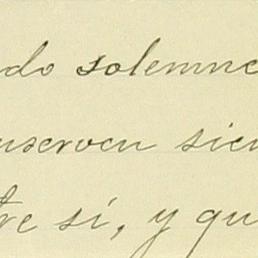 do solemne
nserven sien
tre sí, y qu